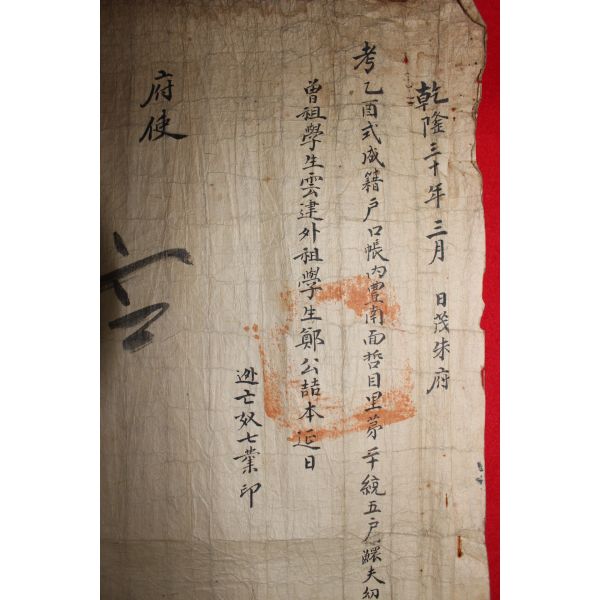 乾隆三十年 三月 日茂朱府
考乙酉式成籍戶口帳內豊南面哲目里苐二千統五戶鰥夫幼
曾祖學生雲建外祖學生鄭公喆本延日
迯亡奴七業印
府使